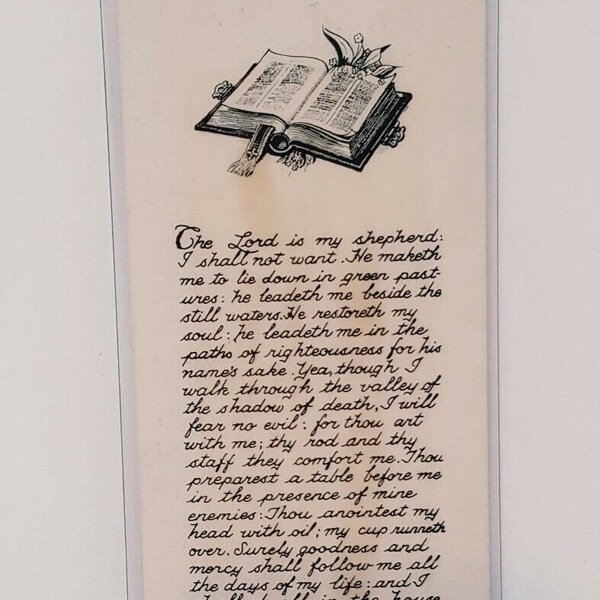 The Lord is my shepherd:
I shall not want. He maketh
me to lie down in green past-
ures: he leadeth me beside the
still waters. He restoreth my
soul: he leadeth me in the
paths of righteousness for his
name's sake. Yea, though I
walk through the valley of
the shadow of death, I will
fear no evil: for thou art
with me; thy rod and thy
staff they comfort me. Thou
preparest a table before me
in the presence of mine
enemies: Thou anointest my
head with oil; my cup runneth
over. Surely goodness and
mercy shall follow me all
the days of my life: and I
in the house